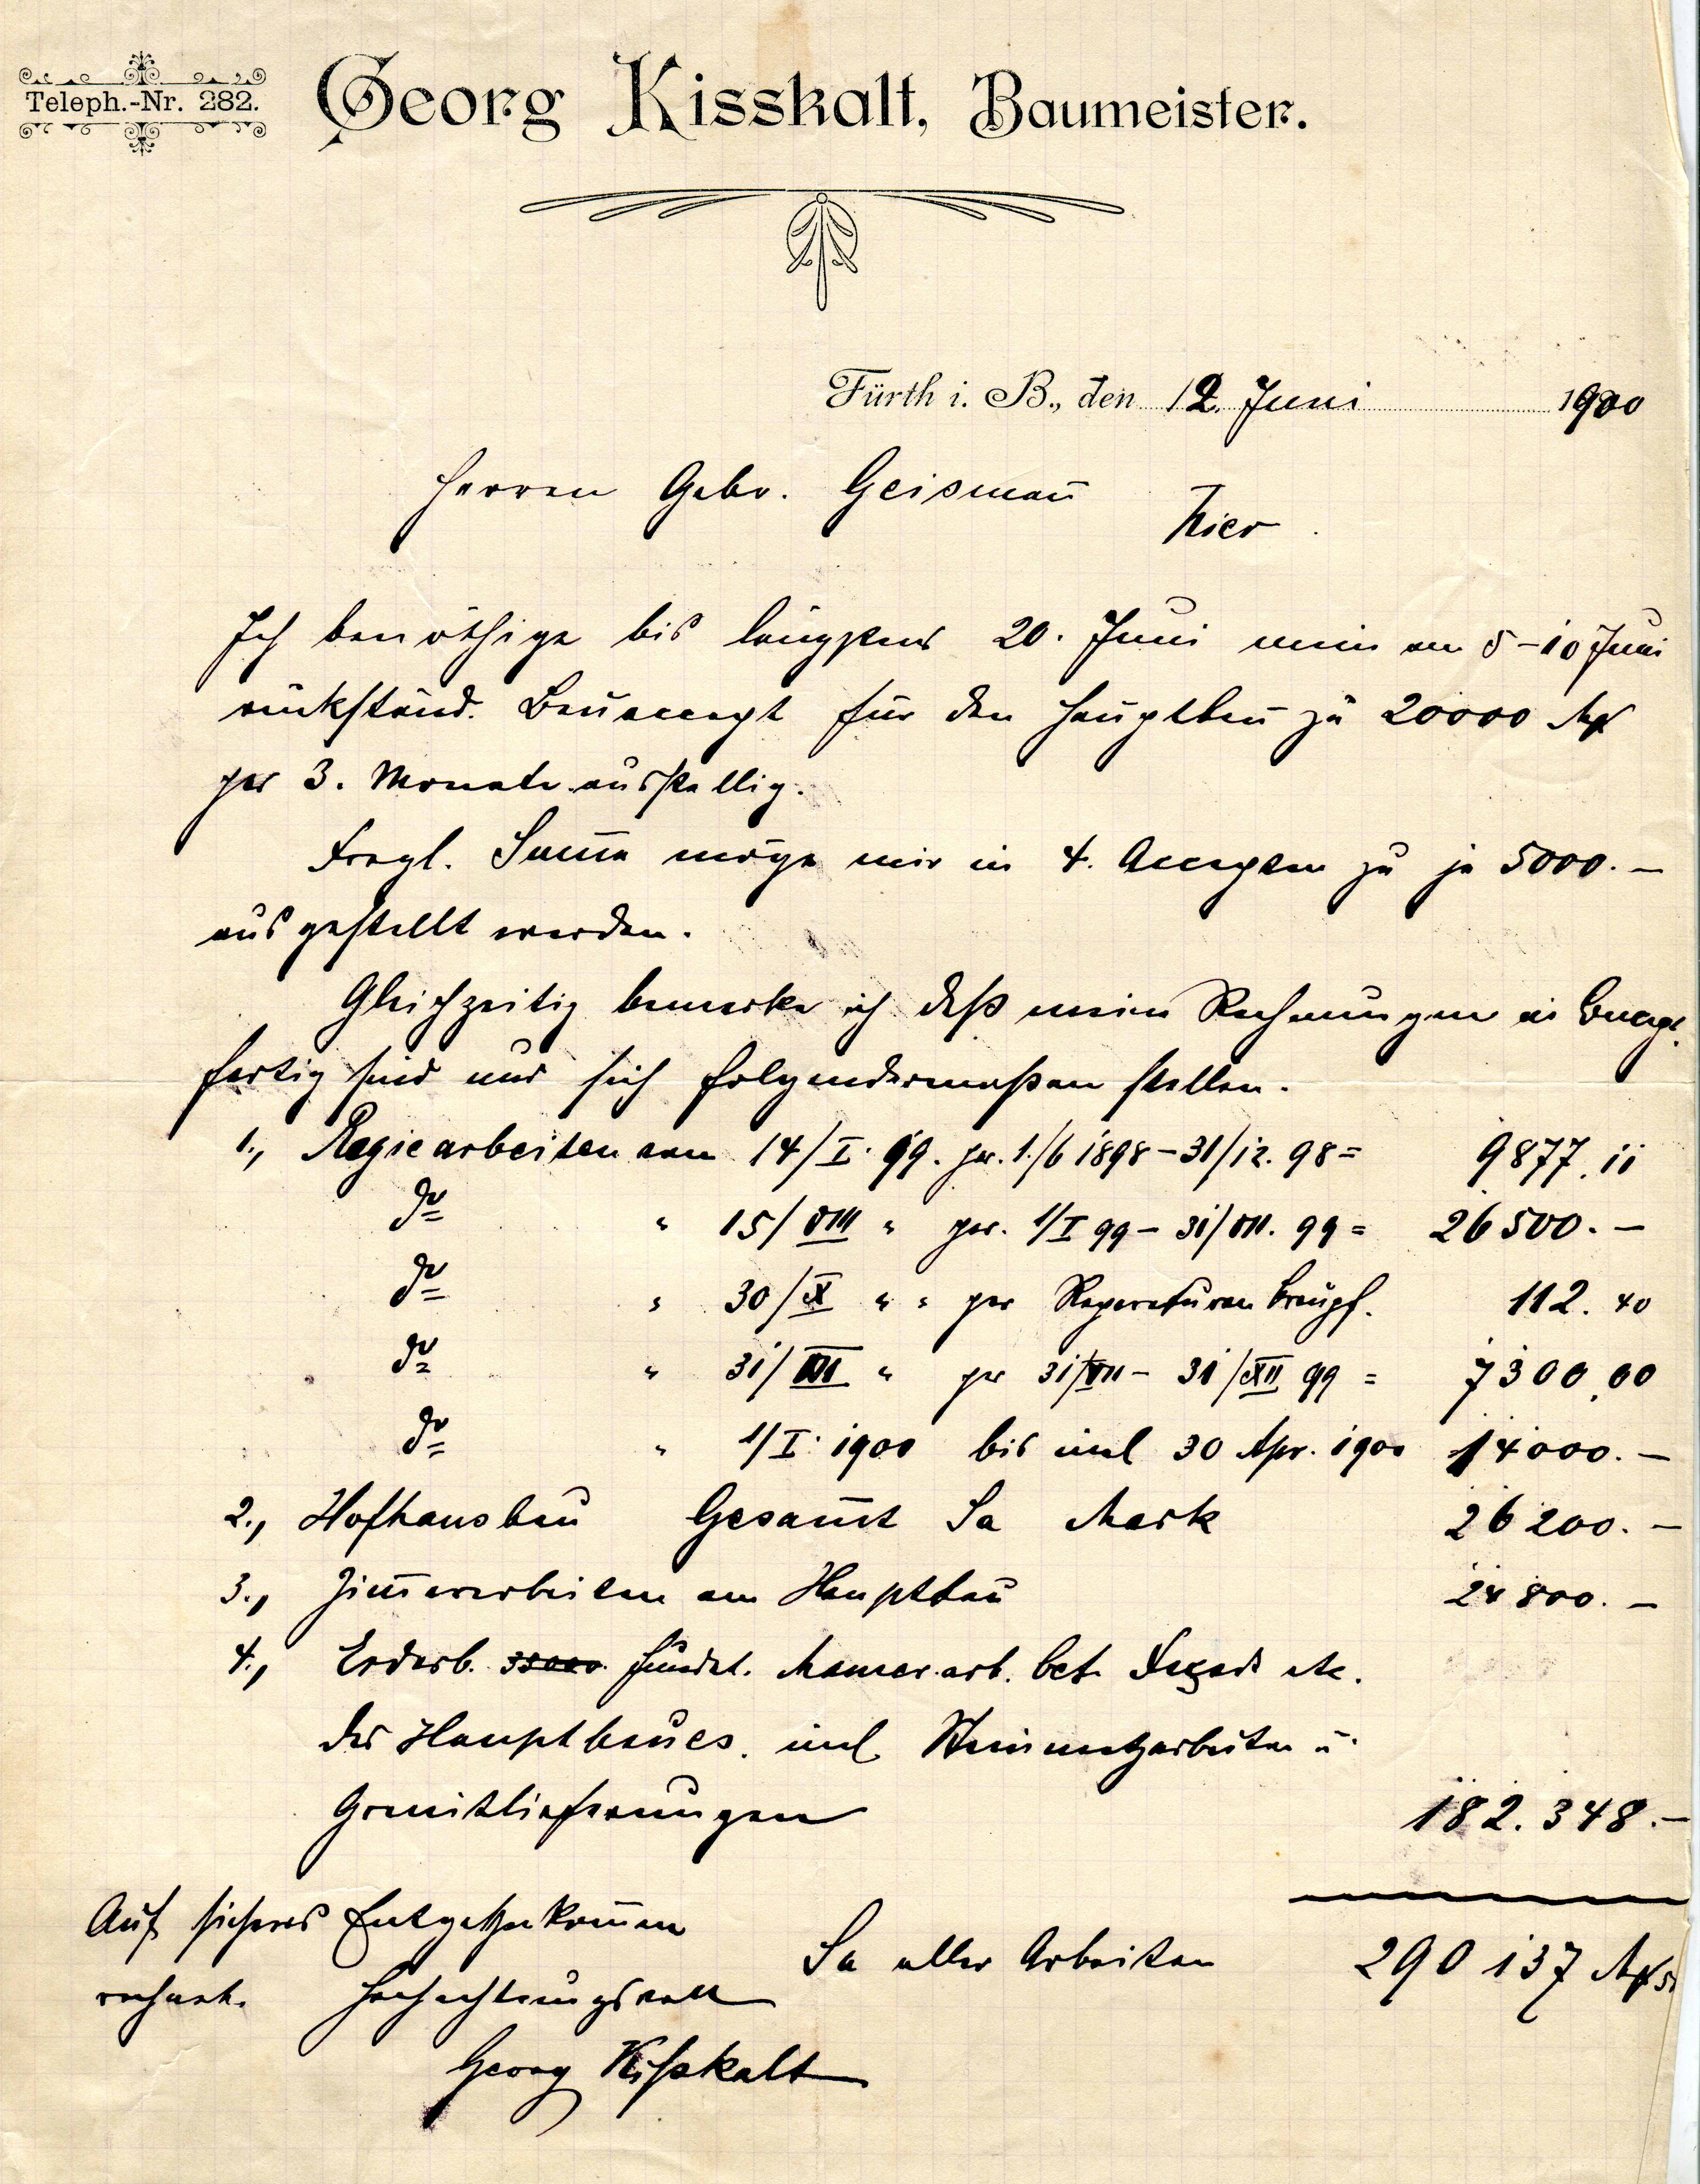 Teleph.-Nr. 282.
Georg Kisskalt, Baumeister.
Fürth i. B., den 12. Juni 1900
Herren Gebr. Geismañ
Hier.
Ich benöthige bis längstens 20. Juni mein am 5-10 Juni
rückständ. Bauaccept für den Hauptbau zu 20000 M
per 3. Monate ausstellig.
Fragl. Sum̄e möge mir in 4. Accepten zu je 5000.—
ausgestellt werden.
Gleichzeitig bemerke ich daß meine Rechnungen in
fertig sind und sich folgendermaßen stellen.
1., Regiearbeiten vom 14/I. 99. per. 1./6 1898 – 31/12. 98 = 9877.11
do " 15/VIII " per. 1/I 99 – 31/VII. 99 = 26500.—
do " 30/X " " per Reparaturen 112.40
do " 31/XII " per 31/VII – 31/XII 99 = 7300,00
do " 1/I. 1900 bis incl 30 Apr. 1900 14000.—
2., Hofhausbau Gesam̄t Sa Mark 26200.—
3., Zim̄erarbeiten am Hauptbau 24800.—
4., Erdarb. Fundat. Maurerarb. bet. Façade etc.
des Hauptbaues. incl. Steinmetzarbeiten u.
Granitlieferungen 182.348.—
Auf sicheres Entgegenkom̄en
Sa aller Arbeiten 290137 M
rechnet. Hochachtungsvoll
Georg Kißkalt